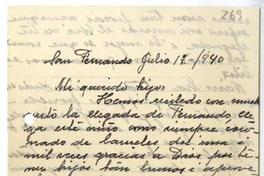 269
San Fernando Julio 12-/940
Mi querido hijo:
Hemos recibido con mucho
gusto la llegada de Fernando, lle
ga este niño como siempre coro
nado de laureles doi una y
mil veces gracias a Dios por te
ner hijos tan buenos i